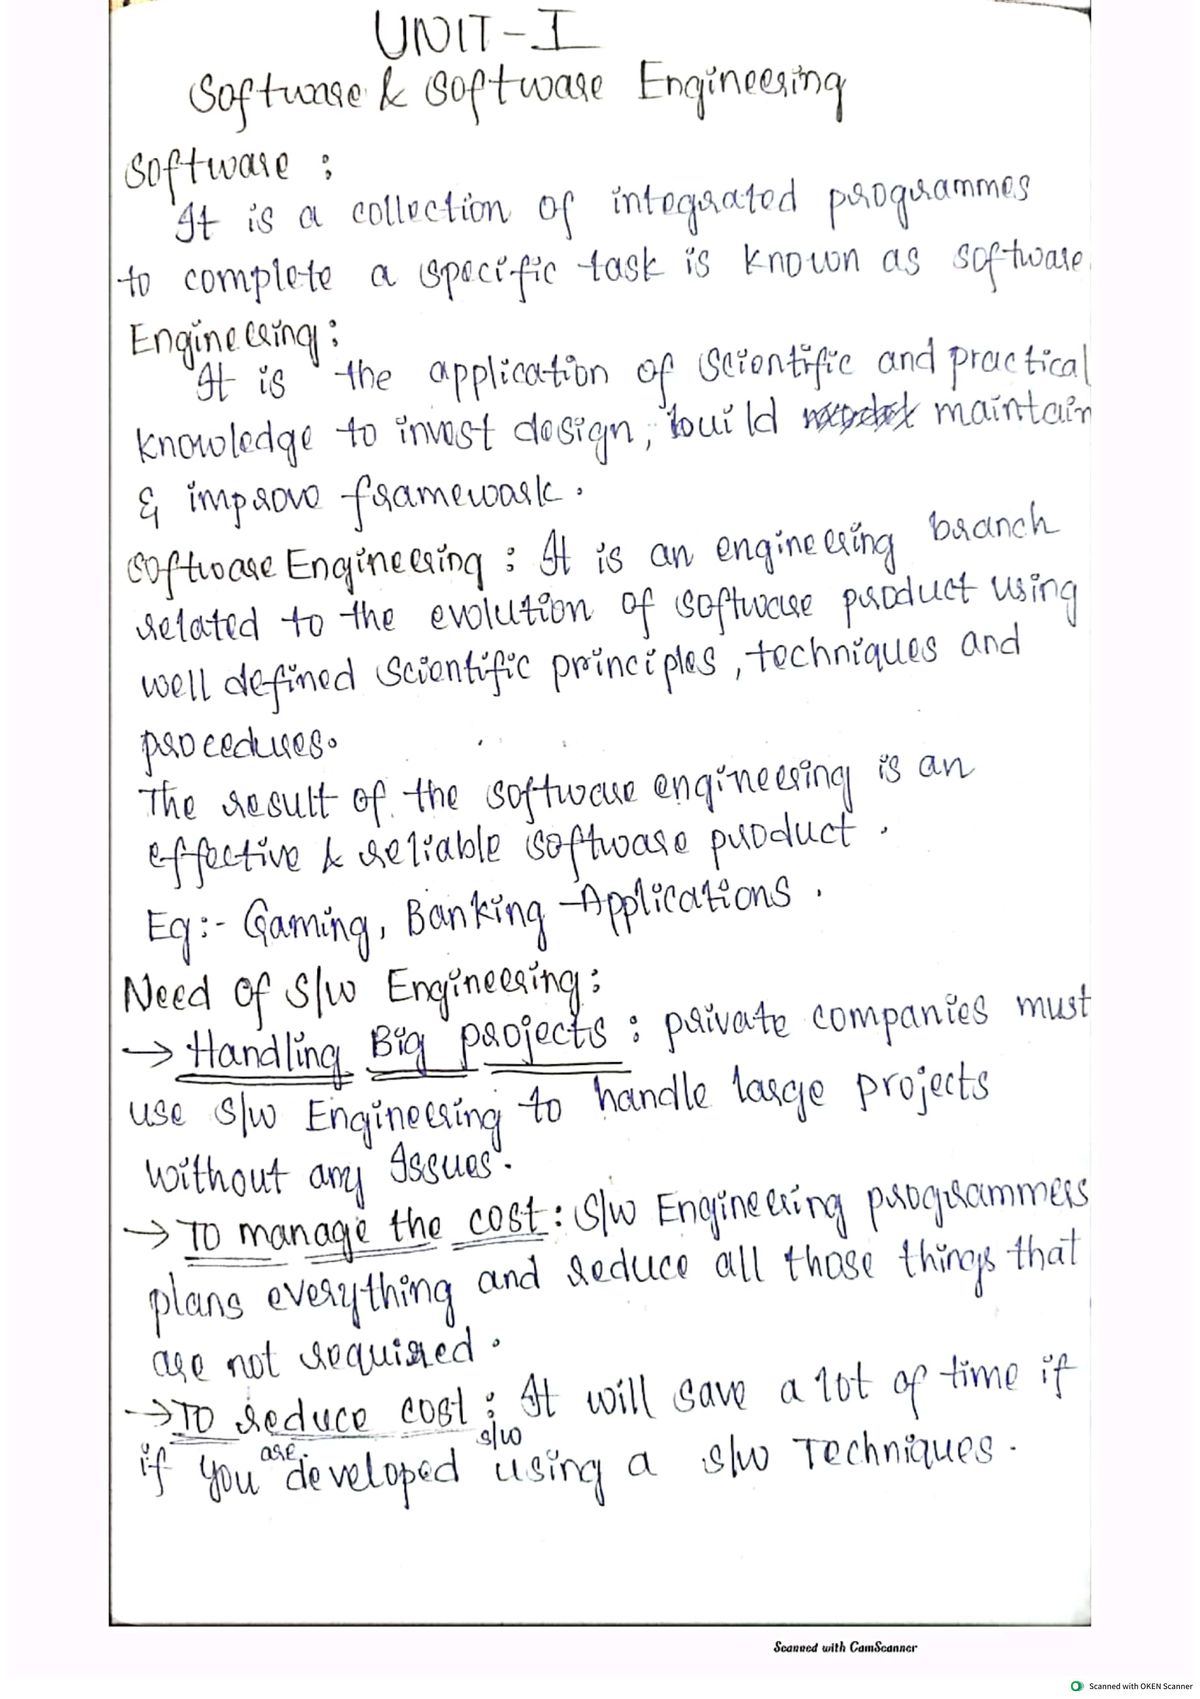 UNIT-I
Software & Software Engineering
Software :
It is a collection of integrated programmes
to complete a specific task is known as software
Engineering :
It is the application of scientific and practical
knowledge to invest design, build maintain
& improve framework.
Software Engineering : It is an engineering branch
related to the evolution of software product using
well defined scientific principles, techniques and
procedures.
The result of the software engineering is an
effective & reliable software product.
Eg:- Gaming, Banking Applications.
Need of S/W Engineering :
→ Handling Big projects : private companies must
use S/W Engineering to handle large projects
without any Issues.
→ TO manage the cost : S/W Engineering programmers
plans everything and reduce all those things that
are not required.
→ TO reduce cost : It will save a lot of time if
are s/w
if you developed using a s/w Techniques.
Scanned with CamScanner
Scanned with OKEN Scanner